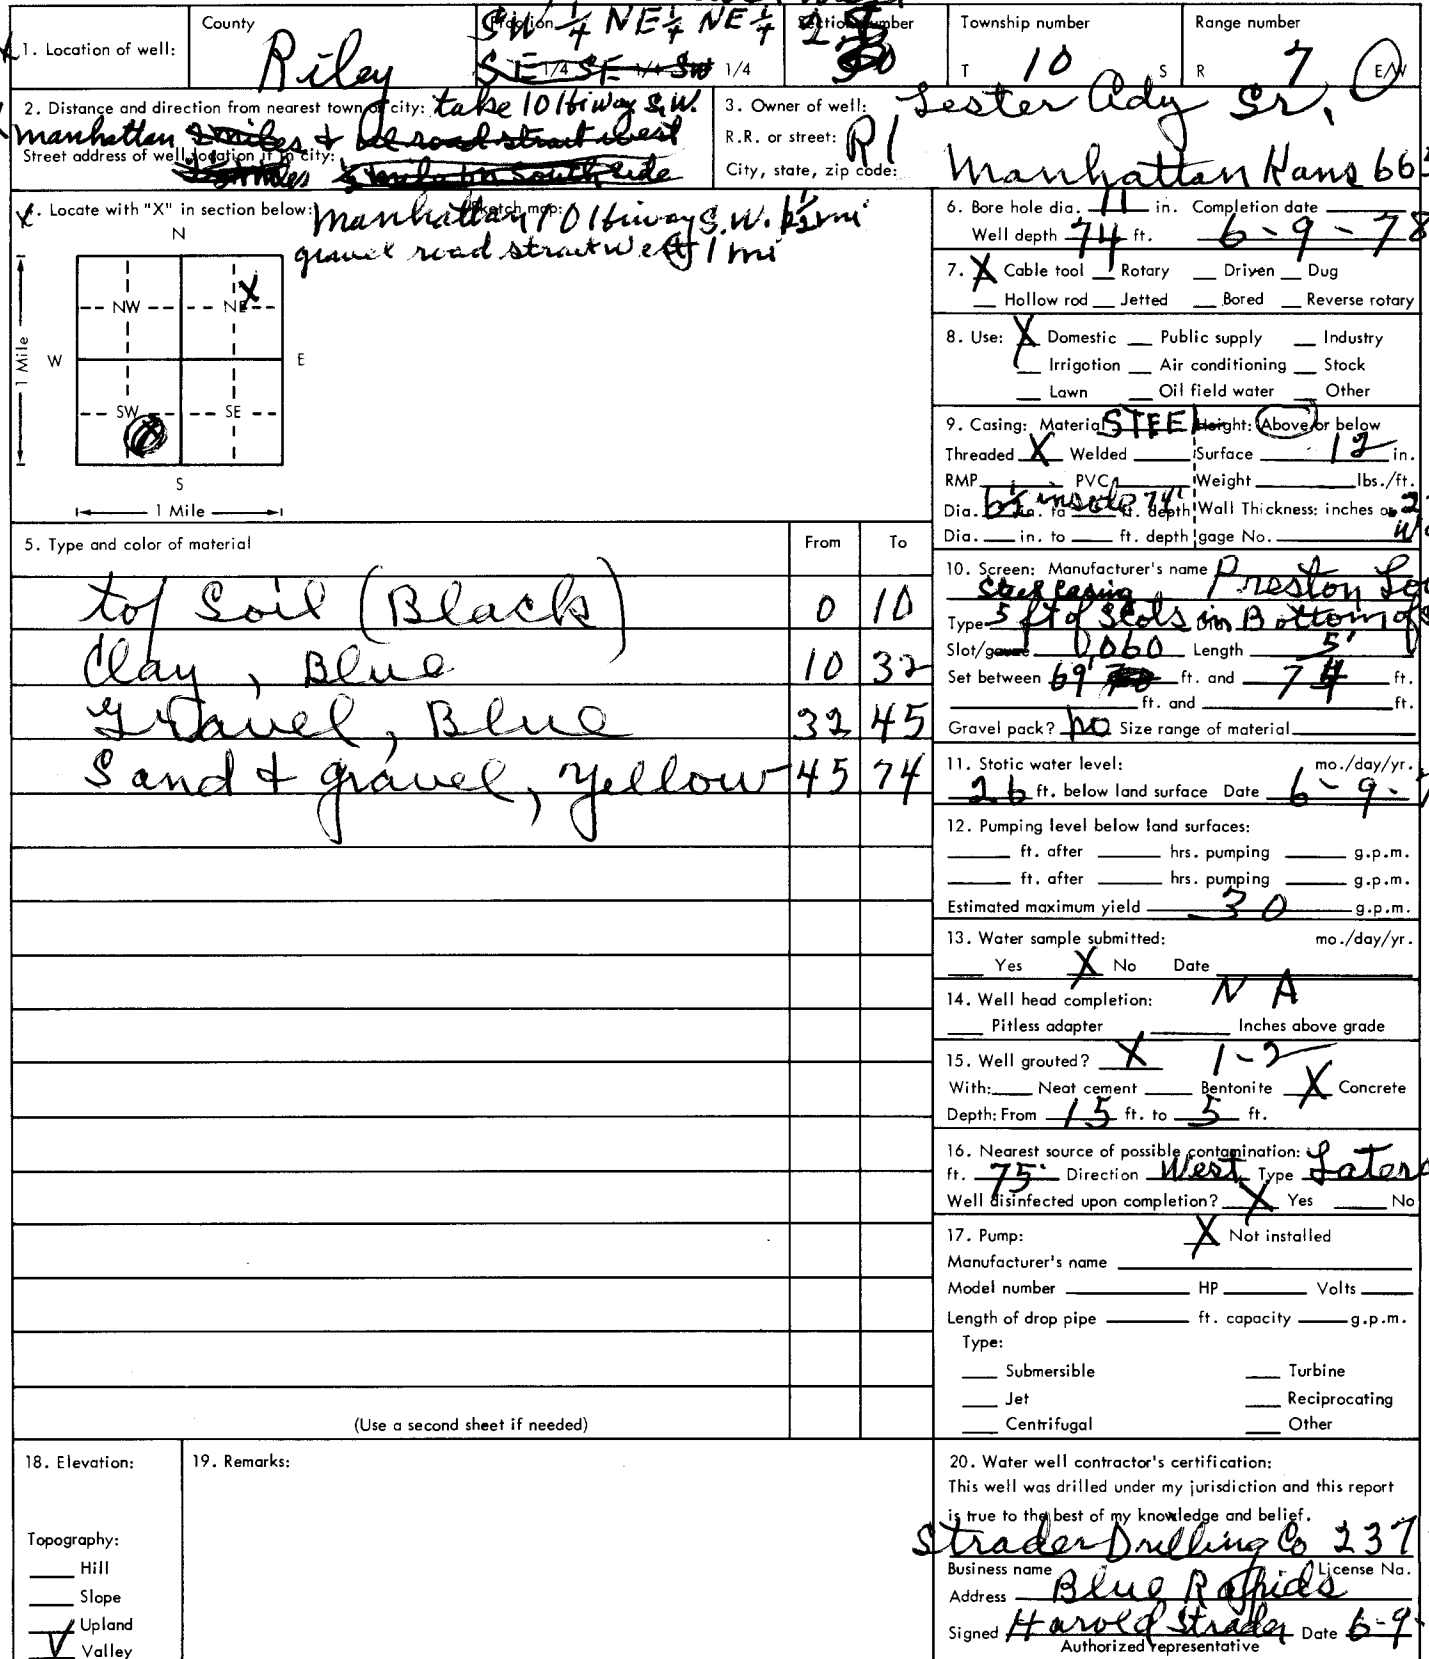 County
SW 1/4 NE 1/4 NE 1/4
Township number
Range number
1. Location of well:
Riley
1/4 1/4 1/4
T 10 S
R 7 E/W
2. Distance and direction from nearest town or city: take 10 Hiway S.W.
Manhattan
Street address of well location if in city:
3. Owner of well: Lester Ady Sr.
R.R. or street: R1
City, state, zip code: Manhattan Kans
4. Locate with "X" in section below:
Sketch map:
Manhattan 10 Hiway S.W.
gravel road strait west 1 mi
N
NW NE
X
W E
SW SE
S
1 Mile
1 Mile
6. Bore hole dia. 11 in. Completion date
Well depth 74 ft. 6-9-78
7. X Cable tool Rotary Driven Dug
Hollow rod Jetted Bored Reverse rotary
8. Use: X Domestic Public supply Industry
Irrigation Air conditioning Stock
Lawn Oil field water Other
9. Casing: Material STEEL Height: Above or below
Threaded X Welded Surface 12 in.
RMP PVC Weight lbs./ft.
Dia. in. to 74' ft. depth Wall Thickness: inches or
Dia. in. to ft. depth gage No.
5. Type and color of material From To
top Soil (Black) 0 10
Clay, Blue 10 32
Gravel, Blue 32 45
Sand & gravel, yellow 45 74
10. Screen: Manufacturer's name Preston
Steel Casing
Type 5 ft of Slots in Bottom of
Slot/gauze .060 Length 5'
Set between 69' ft. and 74 ft.
ft. and ft.
Gravel pack? No Size range of material
11. Static water level: mo./day/yr.
26 ft. below land surface Date 6-9-
12. Pumping level below land surfaces:
ft. after hrs. pumping g.p.m.
ft. after hrs. pumping g.p.m.
Estimated maximum yield 30 g.p.m.
13. Water sample submitted: mo./day/yr.
Yes X No Date
14. Well head completion: N A
Pitless adapter Inches above grade
15. Well grouted? X 1-2
With: Neat cement Bentonite X Concrete
Depth: From 15 ft. to 5 ft.
16. Nearest source of possible contamination:
ft. 75' Direction West Type
Well disinfected upon completion? X Yes No
17. Pump: X Not installed
Manufacturer's name
Model number HP Volts
Length of drop pipe ft. capacity g.p.m.
Type:
Submersible Turbine
Jet Reciprocating
Centrifugal Other
(Use a second sheet if needed)
18. Elevation:
19. Remarks:
Topography:
Hill
Slope
Upland
Valley
20. Water well contractor's certification:
This well was drilled under my jurisdiction and this report
is true to the best of my knowledge and belief.
Strader Drilling Co 237
Business name License No.
Address Blue Rapids
Signed Harold Strader Date 6-9-
Authorized representative